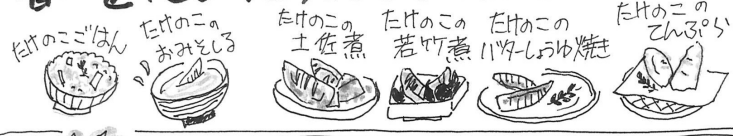 たけのこごはん
たけのこの
おみそしる
たけのこの
土佐煮
たけのこの
若竹煮
たけのこの
バターしょうゆ焼き
たけのこの
てんぷら